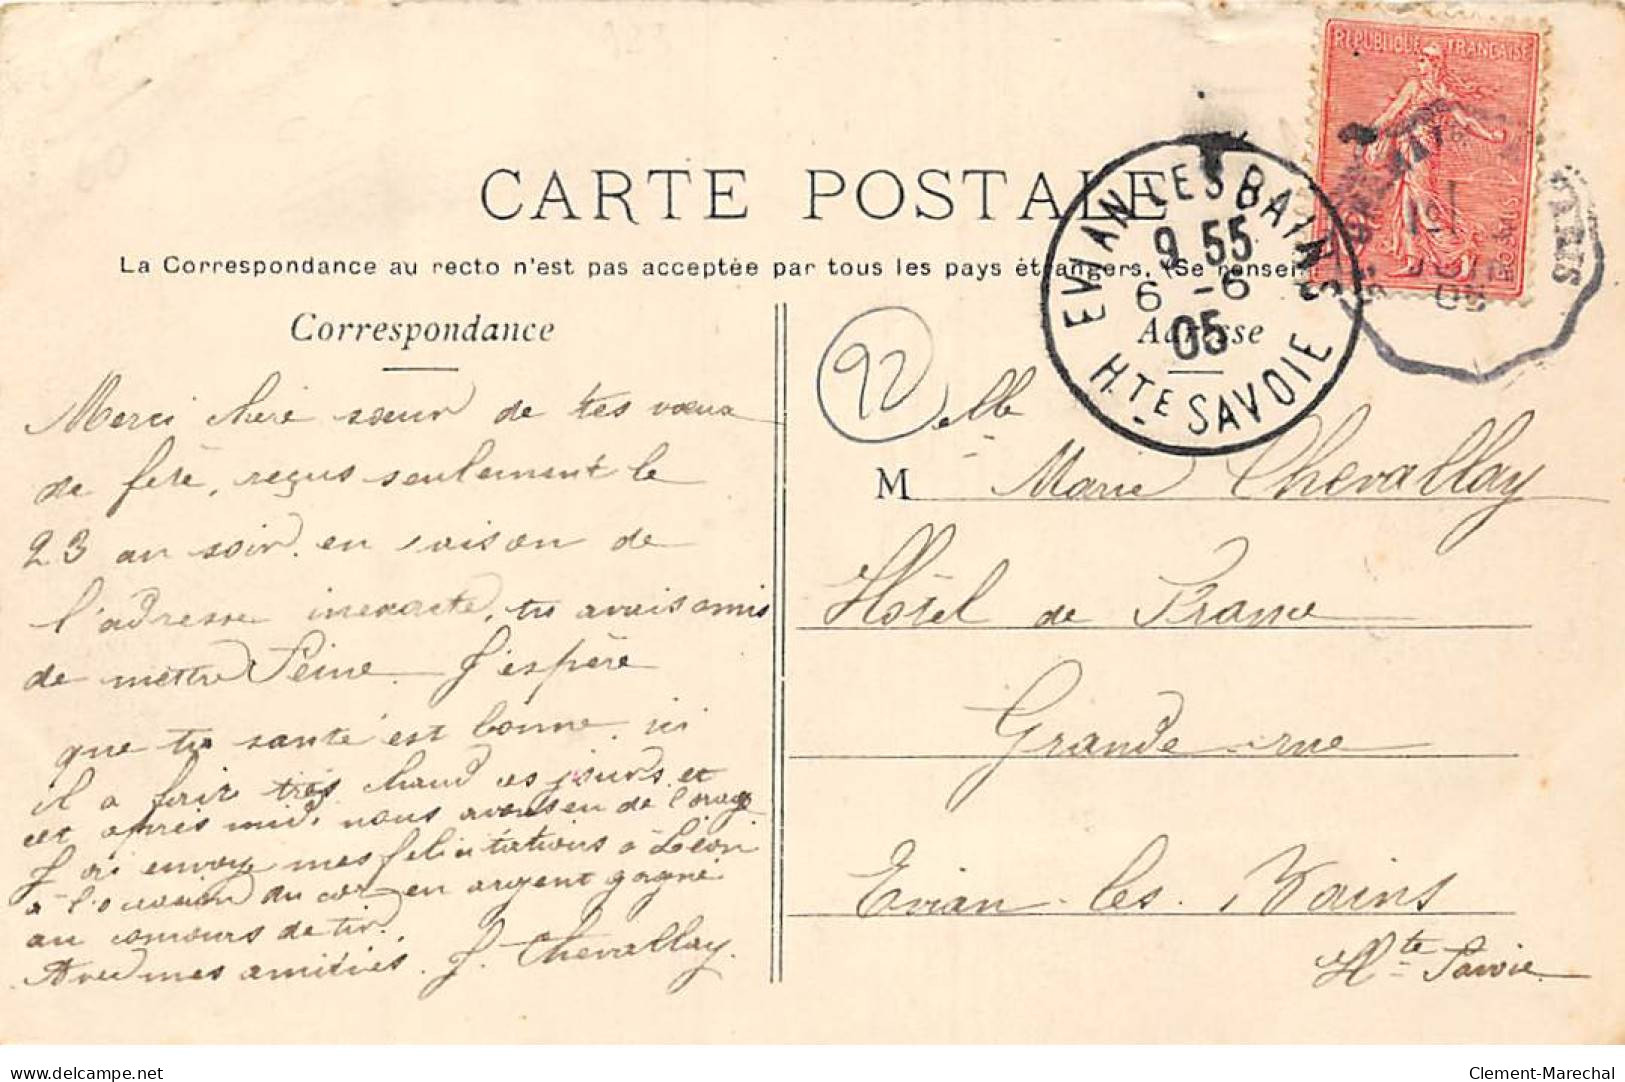 CARTE POSTALE
La Correspondance au recto n'est pas acceptée par tous les pays étrangers. (Se rensei
Correspondance
Adresse
REPUBLIQUE FRANÇAISE
POSTES
EVIAN LES BAINS
9 55
6 - 6
05
HTE SAVOIE
PARIS
05
92
Merci chère sœur de tes vœux
de fête, reçus seulement le
23 au soir. en raison de
l'adresse inexacte, tu avais omis
de mettre Seine. J'espère
que ta santé est bonne, ici
il a fait très chaud ces jours et
cet après midi, nous avons eu de l'orage
J'ai envoyé mes félicitations à Léon
à l'occasion du cor en argent gagné
au concours de tir.
Avec mes amitiés. J. Chevallay.
Mlle
M Marie Chevallay
Hôtel de France
Grande rue
Evian-les-Bains
Hte Savoie
delcampe.net
Clement-Marechal